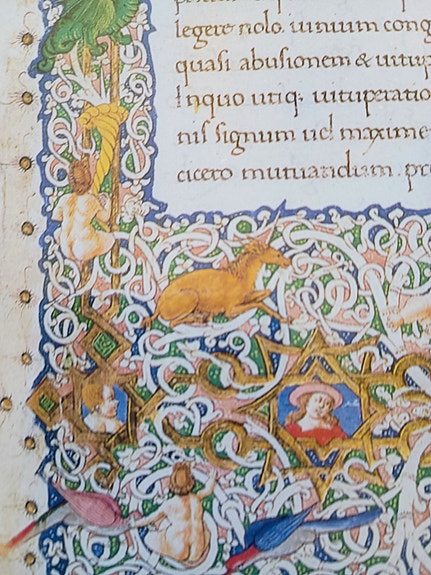 legere nolo. uiuium cong
quasi abusionem & uitup
Inquo utiq; uituperatio
nis signum uel maxime
cicero mutuandum. pr